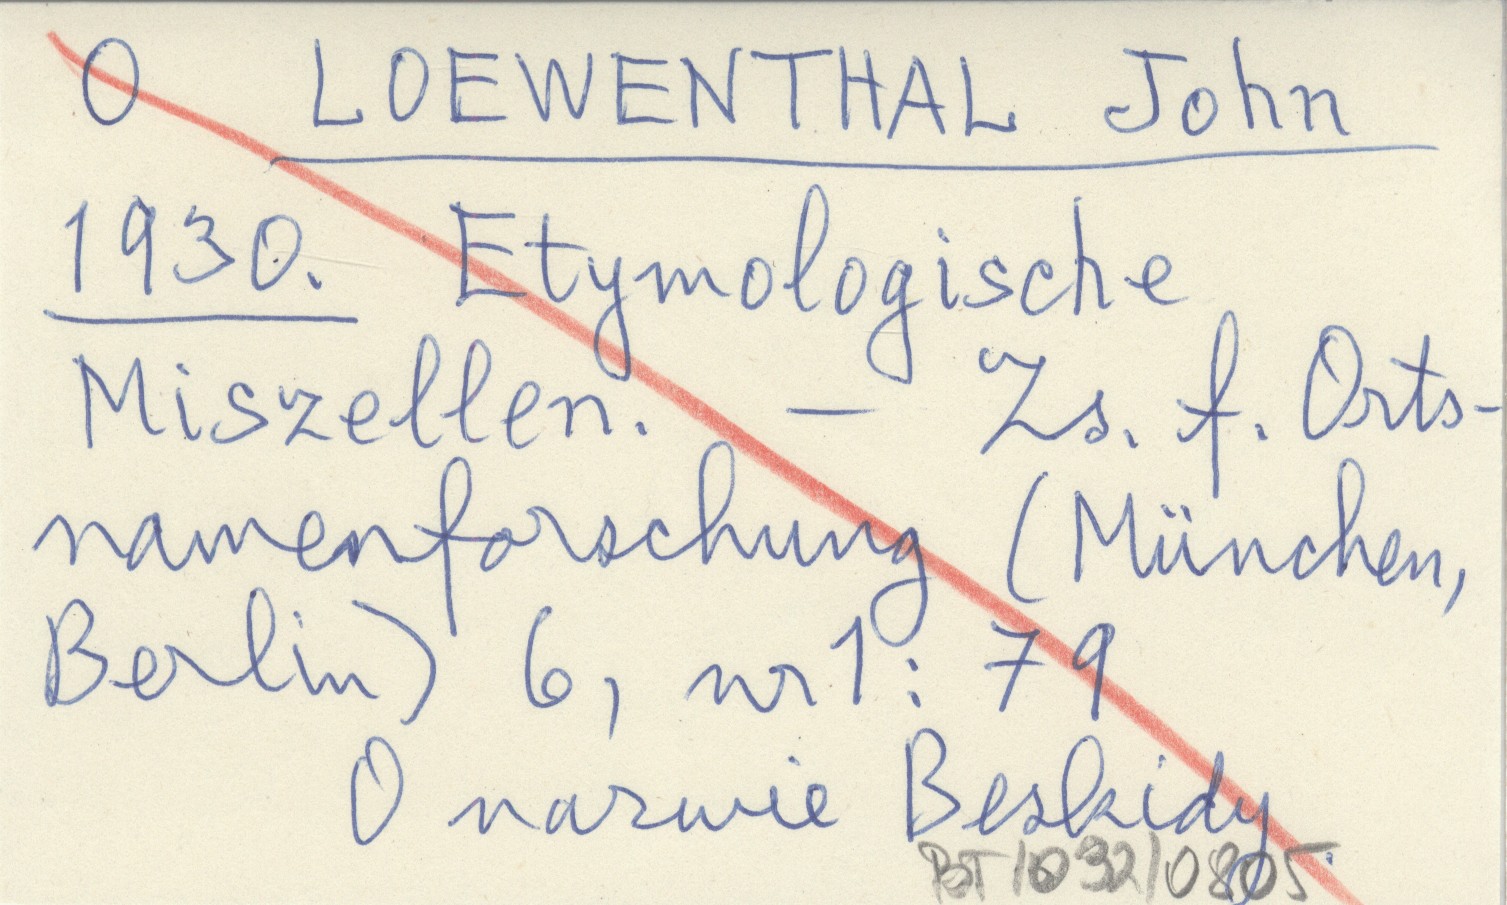 O LOEWENTHAL John
1930. Etymologische
Miszellen. — Zs. f. Orts-
namenforschung (München,
Berlin) 6, nr 1: 79
O nazwie Beskidy.
BT/032/0805